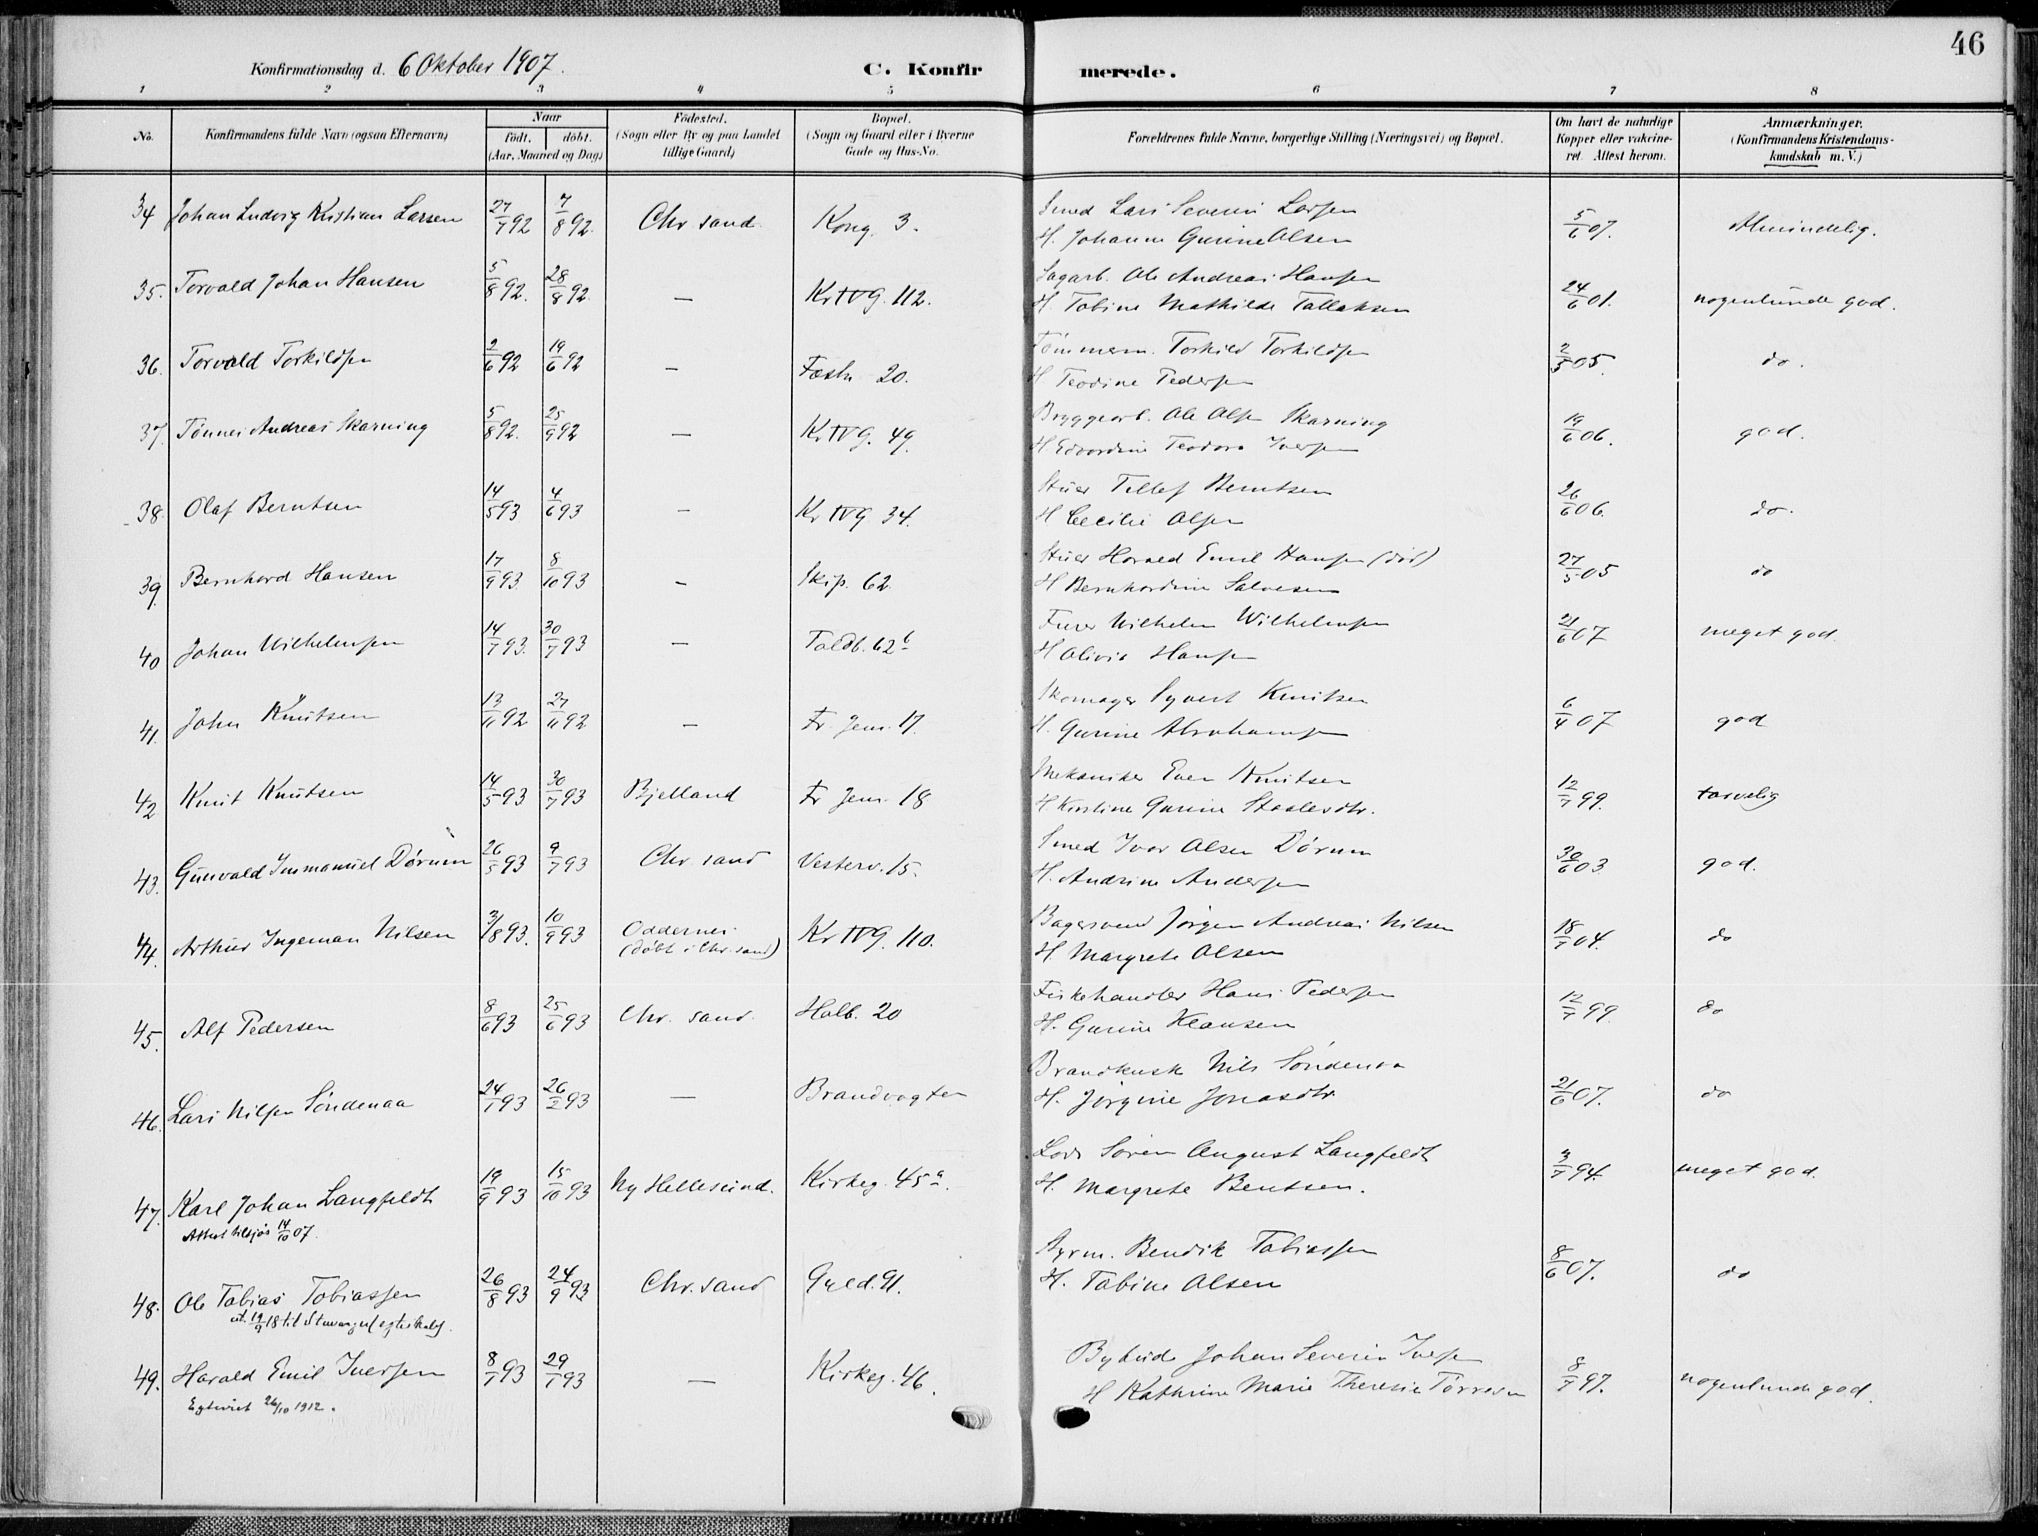 46
Konfirmationsdag d. 6 Oktober 1907. C. Konfirmerede.
1 2 3 4 5 6 7 8
No. Konfirmandens fulde Navn (ogsaa Efternavn) Naar født. døbt. (Aar, Maaned og Dag) Fødested. (Sogn eller By og paa Landet tillige Gaard) Bopæl. (Sogn og Gaard eller i Byerne Gade og Hus-No. Forældrenes fulde Navne, borgerlige Stilling (Næringsvei) og Bopæl. Om havt de naturlige Kopper eller vakcineret. Attest herom. Anmærkninger. (Konfirmandens Kristendomskundskab m. V.)
34 Johan Ludvig Kristian Larsen 27/7 92 7/8 92. Chr. sand Kong. 3. Smed Lars Severin Larsen 5/6 07. Almindelig.
H. Johanne Gurine Olsen
35. Torvald Johan Hansen 5/8 92. 28/8 92. — Kr IV G. 112. Sagarb. Ole Andreas Hansen 24/6 01. nogenlunde god.
H. Tobine Mathilde Tallaksen
36. Torvald Torkildsen 2/6 92 19/6 92 — Festn. 20. Tømmerm. Torkild Torkildsen 2/5 05. do.
H Teodine Pedersen
37. Tønnes Andreas Skarning 5/8 92. 25/9 92 — Kr IV G. 49. Bryggearb. Ole Olsen Skarning 19/6 06. god.
H Edvardine Teodora Iversen
38. Olaf Berntsen 14/5 93 4/6 93 — Kr IV G 34. Stuer Tellef Berntsen 26/6 06. do.
H Cecilie Olsen
39. Bernhard Hansen 17/9 93. 8/10 93 — Skip. 62. Stuer Harald Emil Hansen (død) 27/5 05 do
H Bernhardine Salvesen
40 Johan Wilhelmsen 14/7 93. 30/7 93 — Toldb. 62 b Furer Wilhelm Wilhelmsen 21/6 07 meget god.
H Olivia Hansen
41. John Knutsen 13/11 92 27/11 92 — Fr. Jens. 17. Skomager Syvert Knutsen 6/4 07 god
H. Gurine Abrahamsen
42 Knut Knutsen 14/5 93 30/7 93 Bjelland Fr Jens. 18 Mekaniker Even Knutsen 12/7 99. tarvelig
H. Kirstine Gurine Staalesdtr.
43. Gunvald Immanuel Dørum 26/5 93 9/7 93 Chr. sand Vesterv. 15. Smed Ivar Olsen Dørum 30/6 03. god.
H. Andrine Andersen
44. Arthur Ingeman Nilsen 3/8 93. 10/9 93 Oddernes (døbt i Chr. sand) Kr IV G. 110. Bagersvend Jørgen Andreas Nilsen 18/7 04. do
H. Margrete Olsen
45. Alf Pedersen 8/6 93 25/6 93 Chr. sand. Holb. 20 Fiskehandler Hans Pedersen 12/7 99. do
H. Gurine Klausen
46. Lars Nilsen Søndenaa 24/1 93 26/2 93 — Brandvagten Brandkusk Nils Søndenaa 21/6 07. do
H. Jørgine Jonasdtr.
47. Karl Johan Langfeldt 19/9 93 15/10 93 Ny Hellesund. Kirkeg. 45 a. Lods Søren August Langfeldt 3/7 94. meget god.
Attest tilsjøs 14/10 07. H. Margrete Bentsen.
48. Ole Tobias Tobiassen 26/8 93 24/9 93 Chr. sand Gyld. 91. Styrm. Bendik Tobiassen 8/6 07. do
att. 19/9 18 til Stavanger (egteskab). H. Tobine Olsen
49. Harald Emil Iversen 8/1 93 29/1 93 — Kirkeg. 46. Bybud Johan Severin Iversen 8/7 97. nogenlunde god.
Egteviet 26/10 1912. H Kathrine Marie Theresie Tørresen